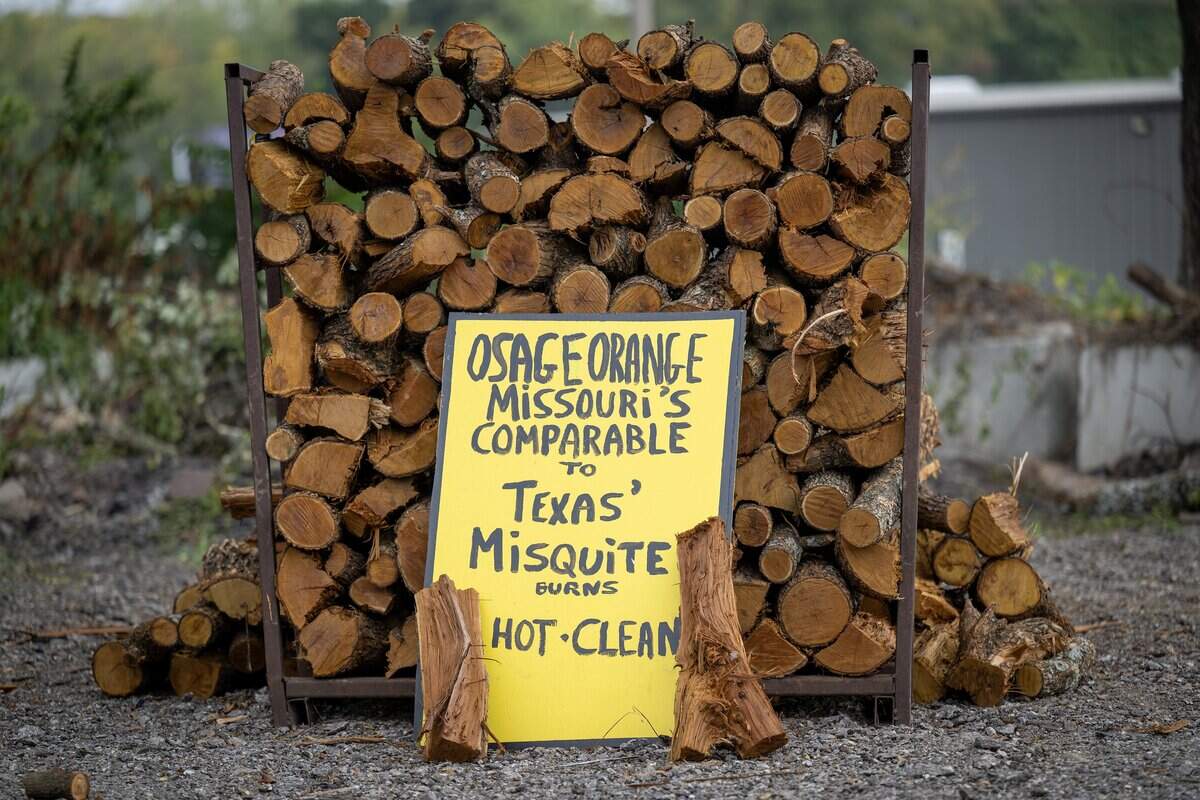 OSAGE ORANGE
MISSOURI'S
COMPARABLE
TO
TEXAS'
MISQUITE
BURNS
HOT·CLEAN